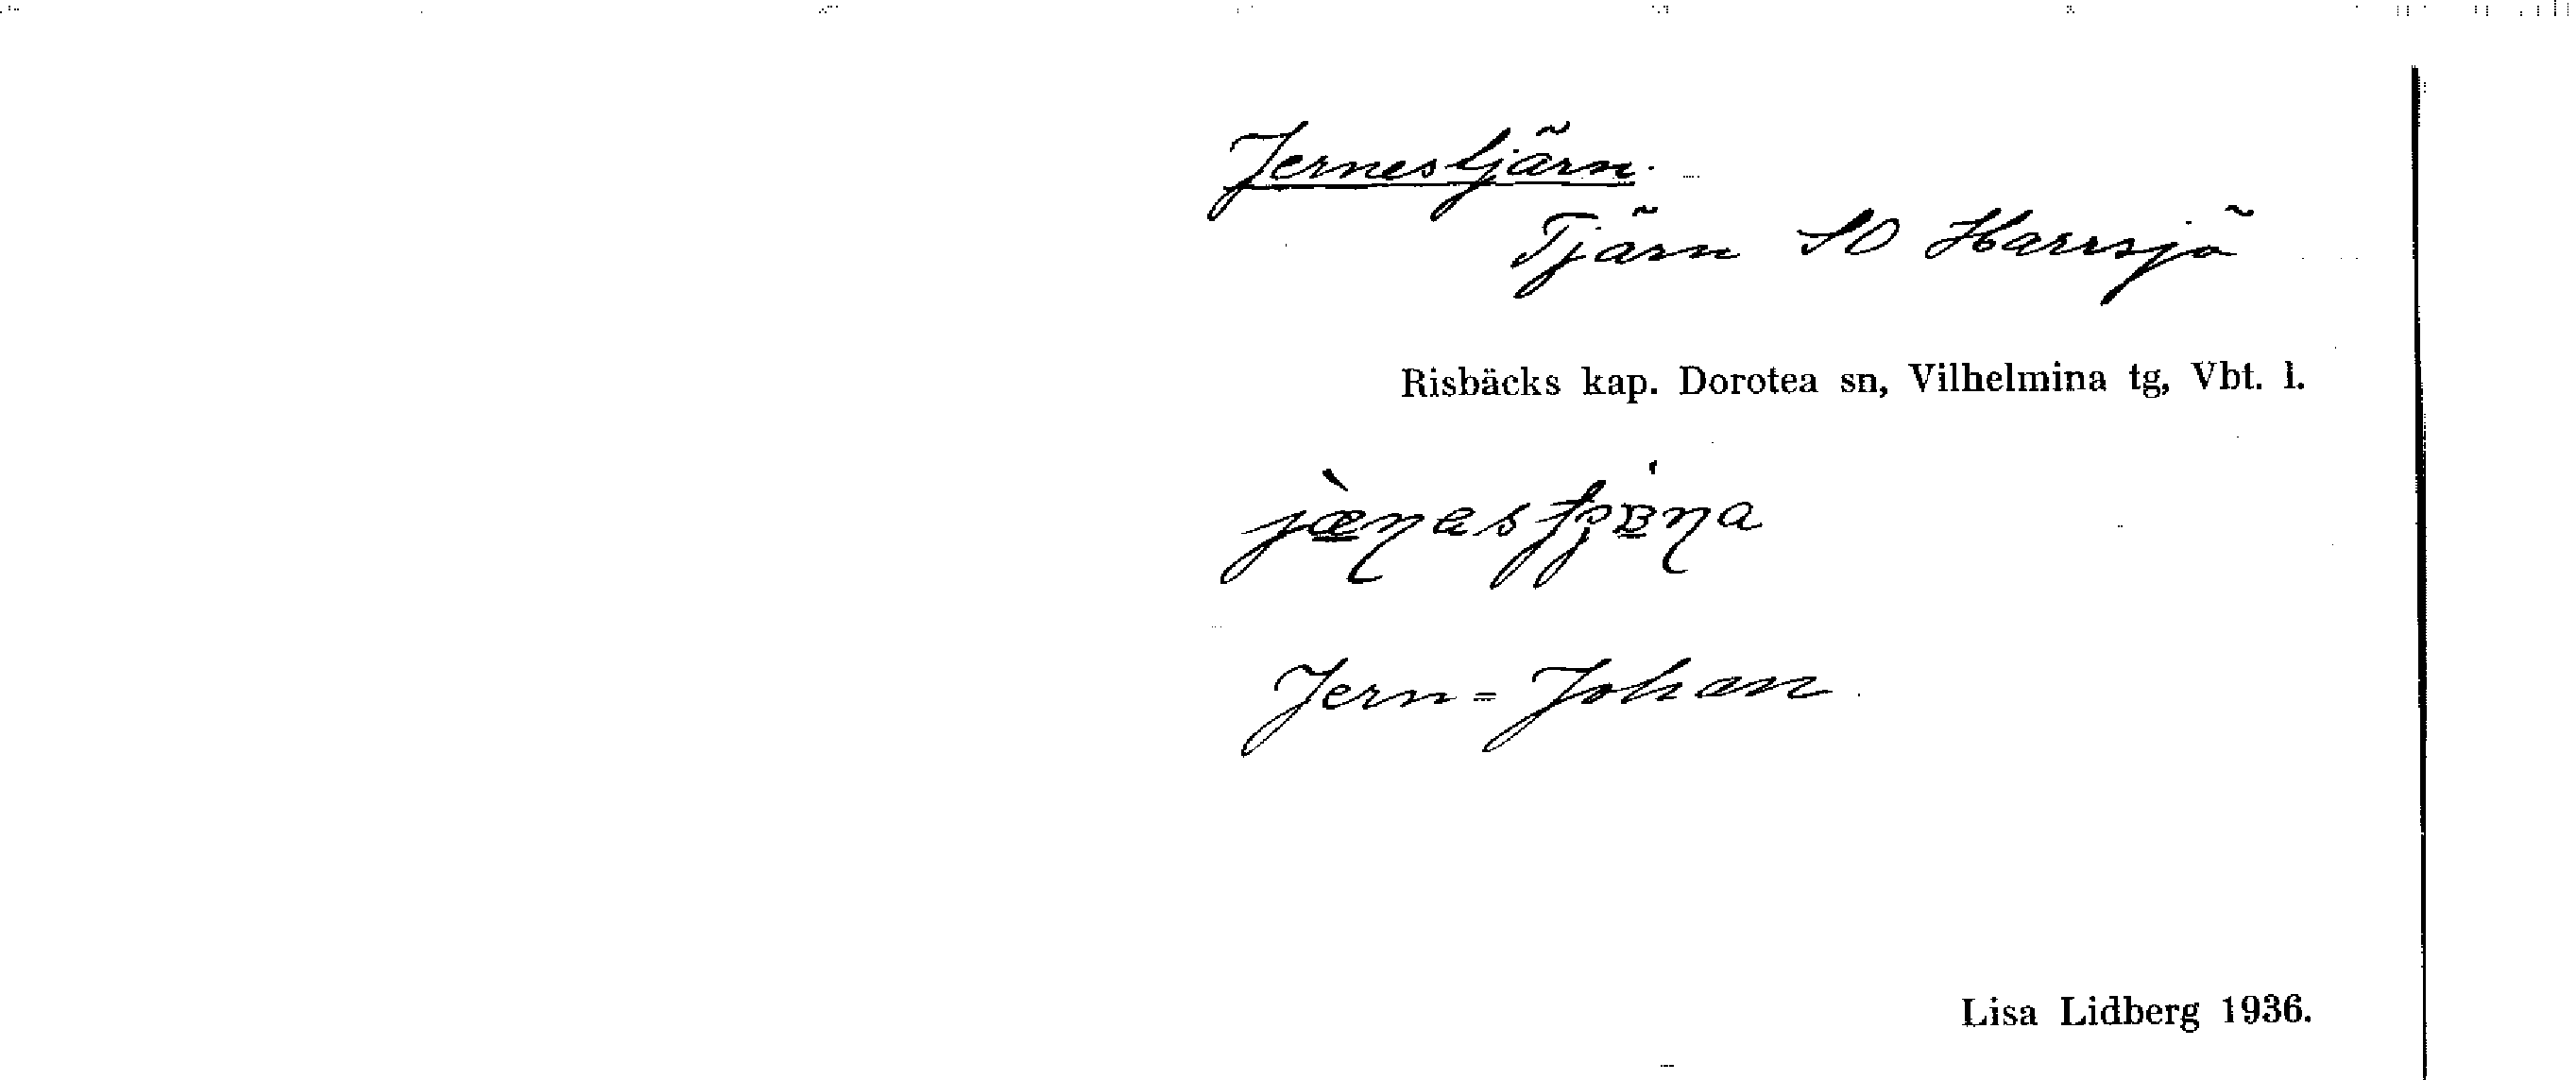 Jernestjärn.
Tjärn SO Harrsjö
Risbäcks kap. Dorotea sn, Vilhelmina tg, Vbt. l.
Jern = Johan
Lisa Lidberg 1936.